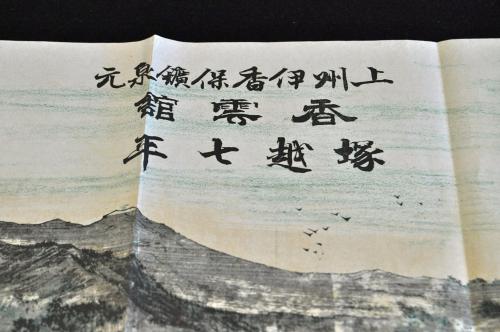 上州伊香保鑛泉元
香雲館
塚越七年